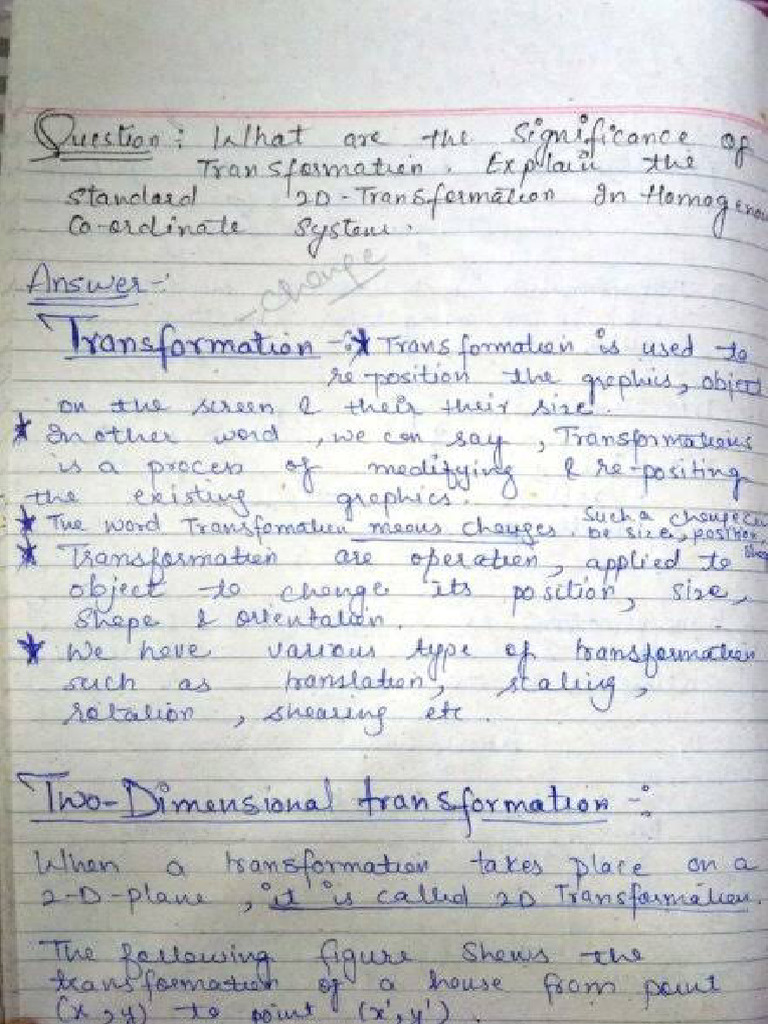 Question: What are the Significance of
Transformation. Explain the
standard 2D-Transformation In Homogenou
Co-ordinate System.
Answer-:
-change
Transformation -: ★ Transformation is used to
re-position the graphics, object
on the screen & their their size.
★ In other word, we can say, Transformations
is a process of modifying & re-positing
the existing graphics.
★ The word Transfomation means changes. Such a change can
be size, position,
★ Transformation are operation, applied to
object to change its position, size,
shape & orientation.
★ We have various type of transformation
such as translation, scaling,
rotation, shearing etc.
Two-Dimensional transformation -:
When a transformation takes place on a
2-D-plane, it is called 2D Transformation.
The following figure shows the
transformation of a house from point
(x,y) to point (x',y').